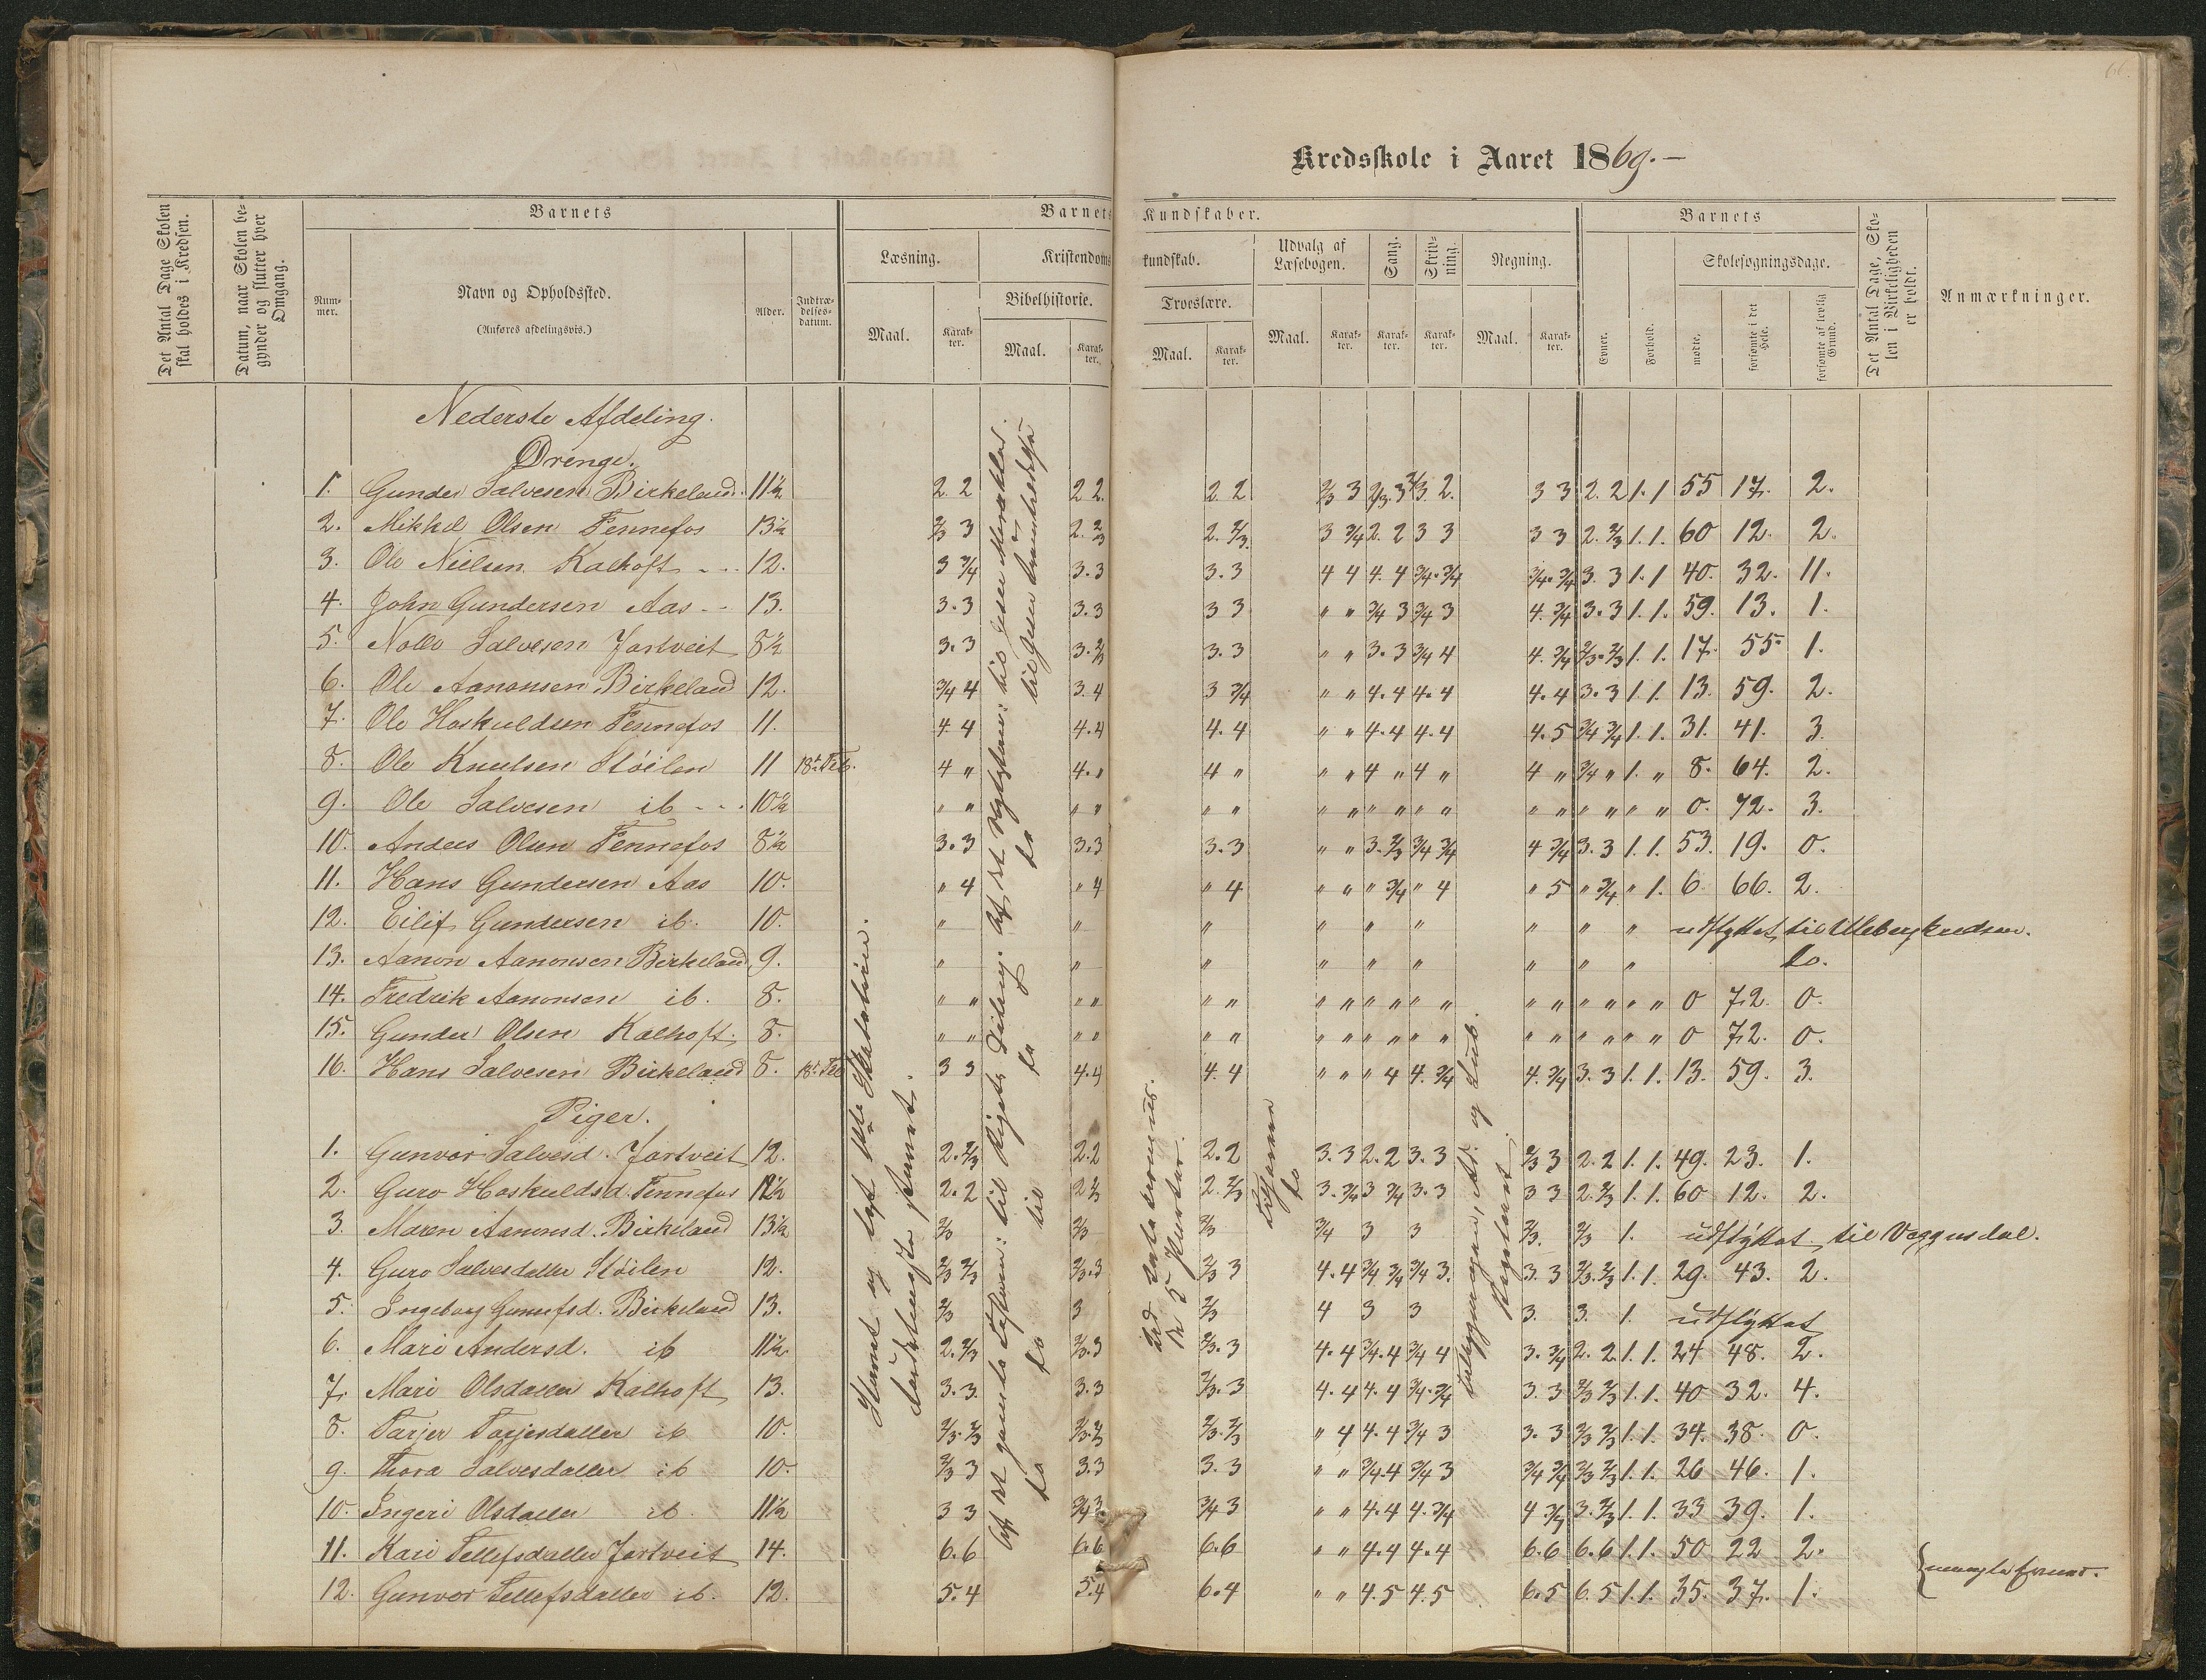 66.
Kredsskole i Aaret 1869.-
Det Antal Dage Skolen skal holdes i Kredsen.
Datum, naar Skolen begynder og slutter hver Omgang.
Barnets
Nummer.
Navn og Opholdssted.
(Anføres afdelingsvis.)
Alder.
Indtrædelsesdatum.
Barnets Kundskaber.
Læsning.
Maal.
Karakter.
Kristendomskundskab.
Bibelhistorie.
Maal.
Karakter.
Troeslære.
Maal.
Karakter.
Udvalg af Læsebogen.
Maal.
Karakter.
Sang.
Karakter.
Skrivning.
Karakter.
Regning.
Maal.
Karakter.
Barnets
Evner.
Forhold.
Skolesøgningsdage.
mødte.
forsømte i det Hele.
forsømte af lovlig Grund.
Det Antal Dage, Skolen i Virkeligheden er holdt.
Anmærkninger.
Nederste Afdeling.
Drenge.
1. Gunder Salvesen Birkeland. 11½ 2. 2 2 2. 2. 2 2/3 3 2/3. 3 3/3 2. 3 3 2. 2 1. 1 55 17. 2.
2. Mikkel Olsen Fennefos 13½ 2/3 3 2. 2/3 2. 2/3. 3 3/4 2. 2 3 3 3 3 2. 2/3 1. 1. 60 12. 2.
3. Ole Nielsen Kalhoft 12. 3 3/4 3.3 3.3 4 4 4. 4 3/4. 3/4 3/4. 3/4 3. 3 1. 1 40. 32. 11.
4. John Gundersen Aas 13. 3.3 3.3 3 3 " " 3/4 3 3/4 3 4. 3/4 3.3 1. 1. 59. 13. 1.
5. Salvesen Jortveit 8½ 3.3 3. 2/3 3.3 " " 3.3 3/4 4 4. 3/4 2/3. 2/3 1. 1. 17. 55. 1.
6. Ole Aanonsen Birkeland 12. 3/4 4 3.4 3 3/4 " " 4.4 4.4 4.4 3.3 1. 1. 13. 59. 2.
7. Ole Hoskuldsen Fennefos 11. 4. 4 4.4 4.4 " " 4.4 4.4 4.5 3/4 3/4 1. 1. 31. 41. 3.
8. Ole Knutsen Støilen 11 18de Feb. 4 " 4. " 4 " " " 4 " 4 " 4 " 3/4 " 1. " 8. 64. 2.
9. Ole Salvesen ib 10½ " " " " " " " " " " " " " " " " " " 0. 72. 3.
10. Anders Olsen Fennefos 8½ 3.3 3.3 3.3 " " 3. 2/3 3/4 3/4 4 3/4 3.3 1. 1. 53. 19. 0.
11. Hans Gundersen Aas 10. " 4 " 4 " 4 " " " 3/4 " 4 " 5 " 3/4 " 1. 6 66. 2.
12. Eilif Gundersen ib. 10. " " " " " " " " " udflyttet til
13. Aanon Aanonsen Birkeland 9. " " " " " " " " " do.
14. Fredrik Aanonsen ib. 8. " " " " " " " " " " " " " " " " " " 0 72. 0.
15. Gunder Olsen Kalhoft. 8. " " " " " " " " " " " " " " " " " " 0 72. 0.
16. Hans Salvesen Birkeland 8. 18de Feb 3 3 4.4 4. 4 " " " 4 4. 3/4 4. 3/4 3. 3 1. 1. 13. 59. 3.
Piger.
1. Gunvor Salvesd. Jortveit 12. 2. 2/3 2.2 2.2 3.3 2.2 3.3 2/3 3 2.2 1. 1. 49. 23. 1.
2. Guro Hoskuldsd. Fennefos 12½ 2.2 2 2/3 2. 2/3 3. 3/4 3 3/4 3.3 3 3 2. 2/3 1. 1. 60 12. 2.
3. Maren Aanonsd. Birkeland 13½ 2/3 2/3 2/3 3/4 3 3 2/3. 2/3 1. udflyttet til Veggusdal.
4. Guro Salvesdatter Støilen 12. 2/3 2/3 2/3.3 2/3 3 4.4 3/4 3/4 3/4 3. 3. 3 2/3. 2/3 1. 1. 29. 43. 2.
5. Ingeborg Birkeland 13. 2/3 3 2/3 4 3 3 3. 3. 1. udflyttet
6. Mari Andersd. ib 11½. 2. 2/3 2/3.3 2/3.3 4.4 3/4.4 3/4 4 3. 3/4 2. 2 1. 1. 24 48. 2.
7. Mari Olsdatter Kalhoft 13. 3.3 3.3 2/3.3 4.4 4.4 3/4. 3/4 3. 3 2/3 2/3 1. 1. 40 32. 4.
8. Tarjer Tarjesdatter ib 10. 2/3. 2/3 2/3. 2/3 2/3. 2/3 " 4 4.4 3/4 3 3. 3 2/3 2/3 1. 1. 34. 38. 0.
9. Thora Salvesdatter ib 10. 2/3 3 3.3 3.3 " " 3/4.4 3/4 3 3/4 3/4 2/3 2/3 1. 1. 26 46. 1.
10. Ingeri Olsdatter ib. 11½ 3 3 3/4 3. 3/4 3 " " 4.4 4. 3/4 4 3/4 3. 2/3 1. 1. 33 39. 1.
11. Kari Tellefsdatter Jortveit 14. 6.6 6.6 6.6 " " 4.4 4.4 6.6 6.6 1. 1. 50 22 2.
12. Gunvor Tellefsdatter ib. 12. 5.4 5.4 6.4 " " 4.5 4.5 6.5 6.5 1. 1. 35. 37. 1.